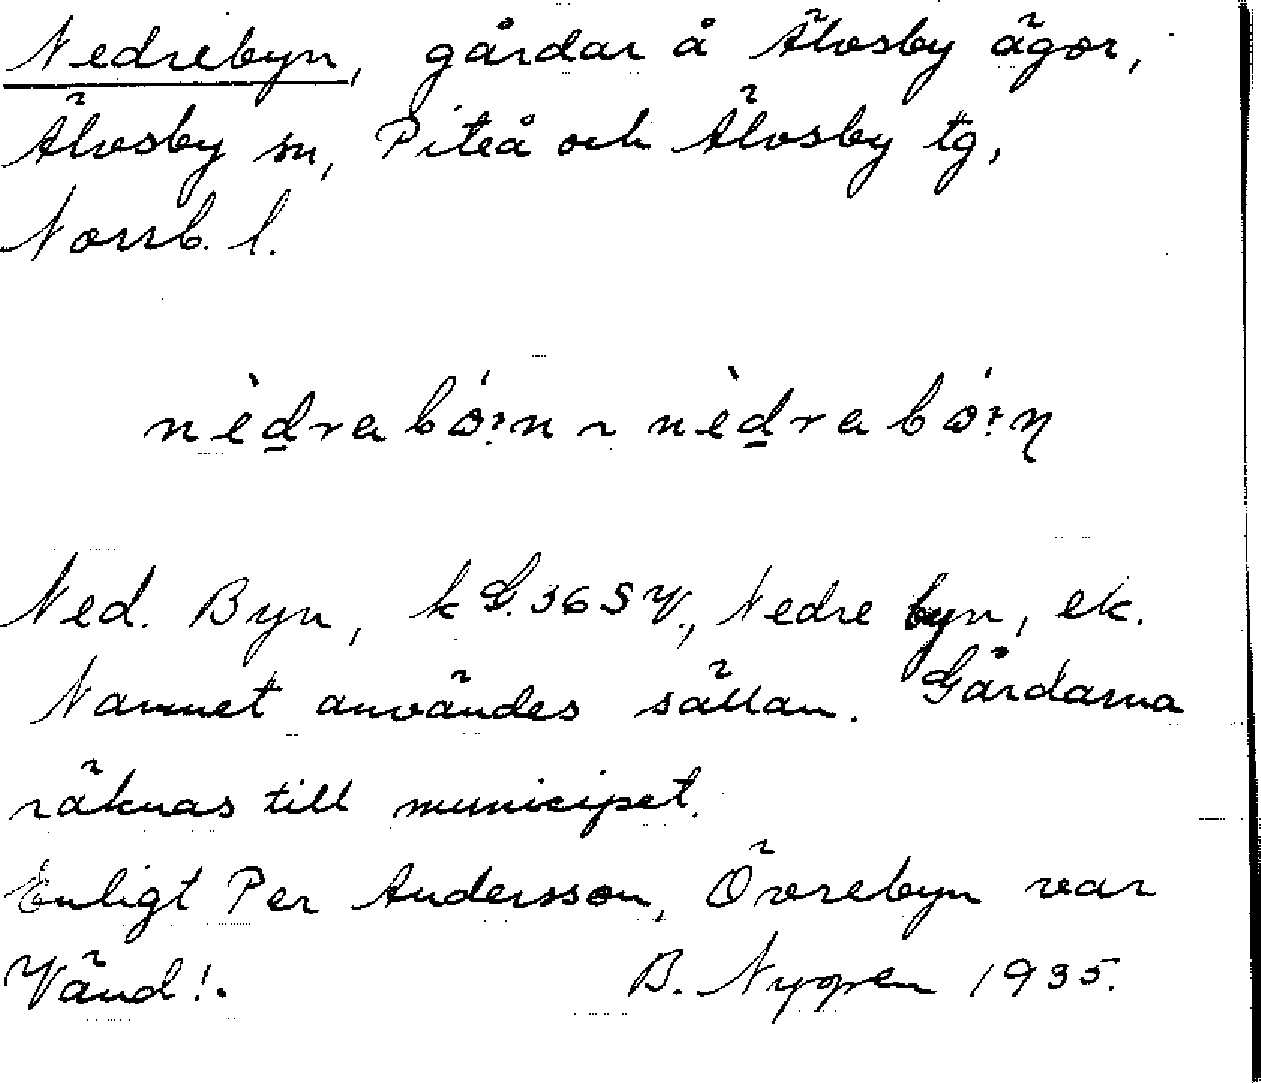 Nedrebyn, gårdar å Älvsby ägor,
Älvsby sn, Piteå och Älvsby tg,
Norrb. l.
nèd̲ra bó:n ~ nèd̲ra bó:n
Ned. Byn, k G. 36 SV., Nedre byn, ek.
Namnet användes sällan. Gårdarna
räknas till municipet.
Enligt Per Andersson, Övrebyn var
Vänd!. B. Nygren 1935.